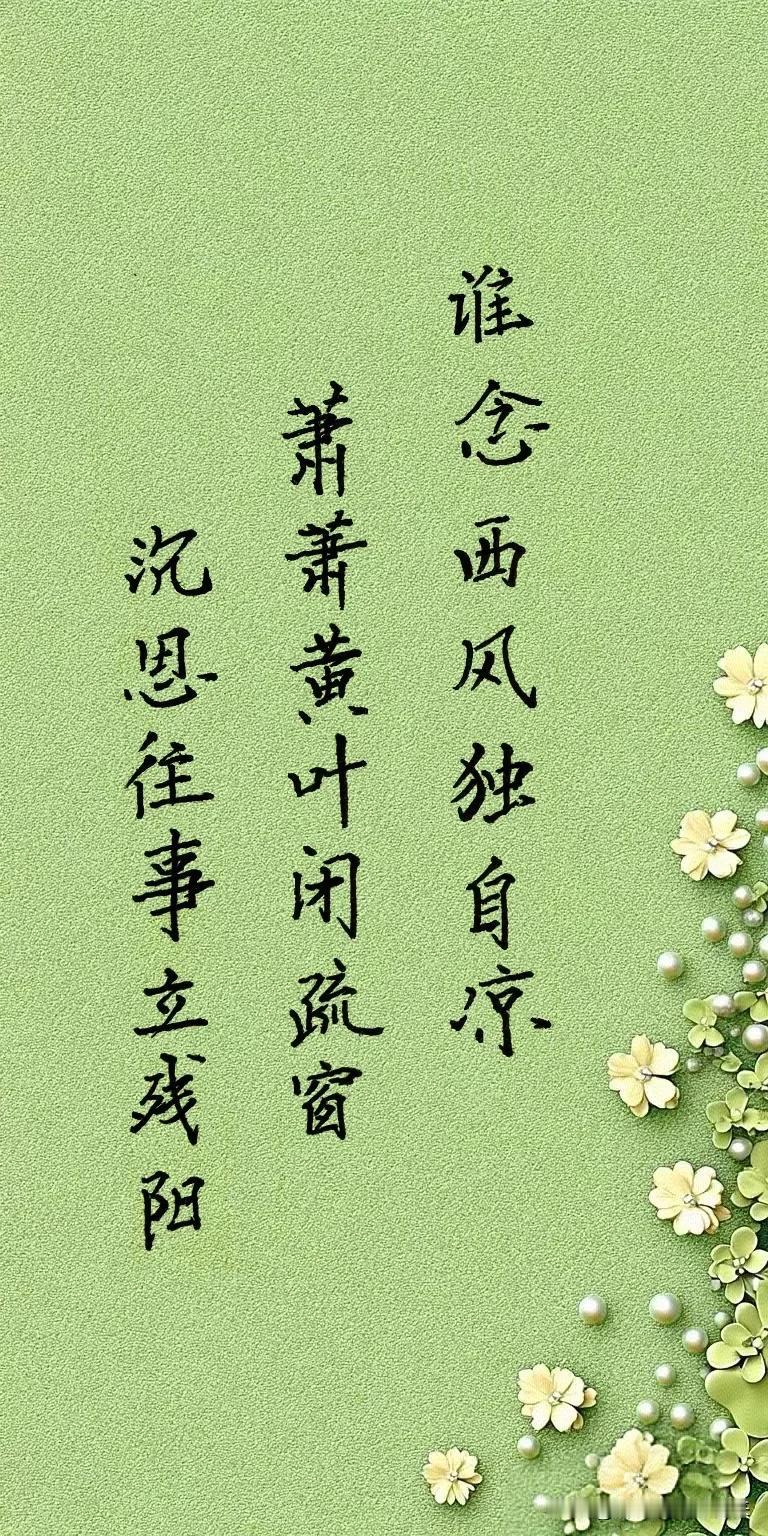 谁念西风独自凉
萧萧黄叶闭疏窗
沉恩往事立残阳